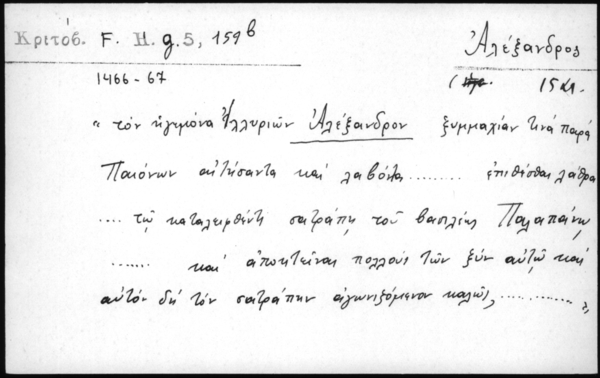 Κριτόβ. F. H. g. 5, 159 b
Ἀλέξανδρος
1466-67
« τὸν ἡγεμόνα Ἰλλυριῶν Ἀλέξανδρον ξυμμαχίαν τινά παρά
Παιόνων αἰτήσαντα καὶ λαβόντα ........ ἐπιθέσθαι λάθρα
.... τῷ καταλειφθέντι σατράπῃ τοῦ βασιλέως Παλαπάνῳ,
....... καὶ ἀποκτεῖναι πολλούς τῶν ξύν αὐτῷ καὶ
αὐτόν δή τόν σατράπην ἀγωνιζόμενον καλῶς, ............ »